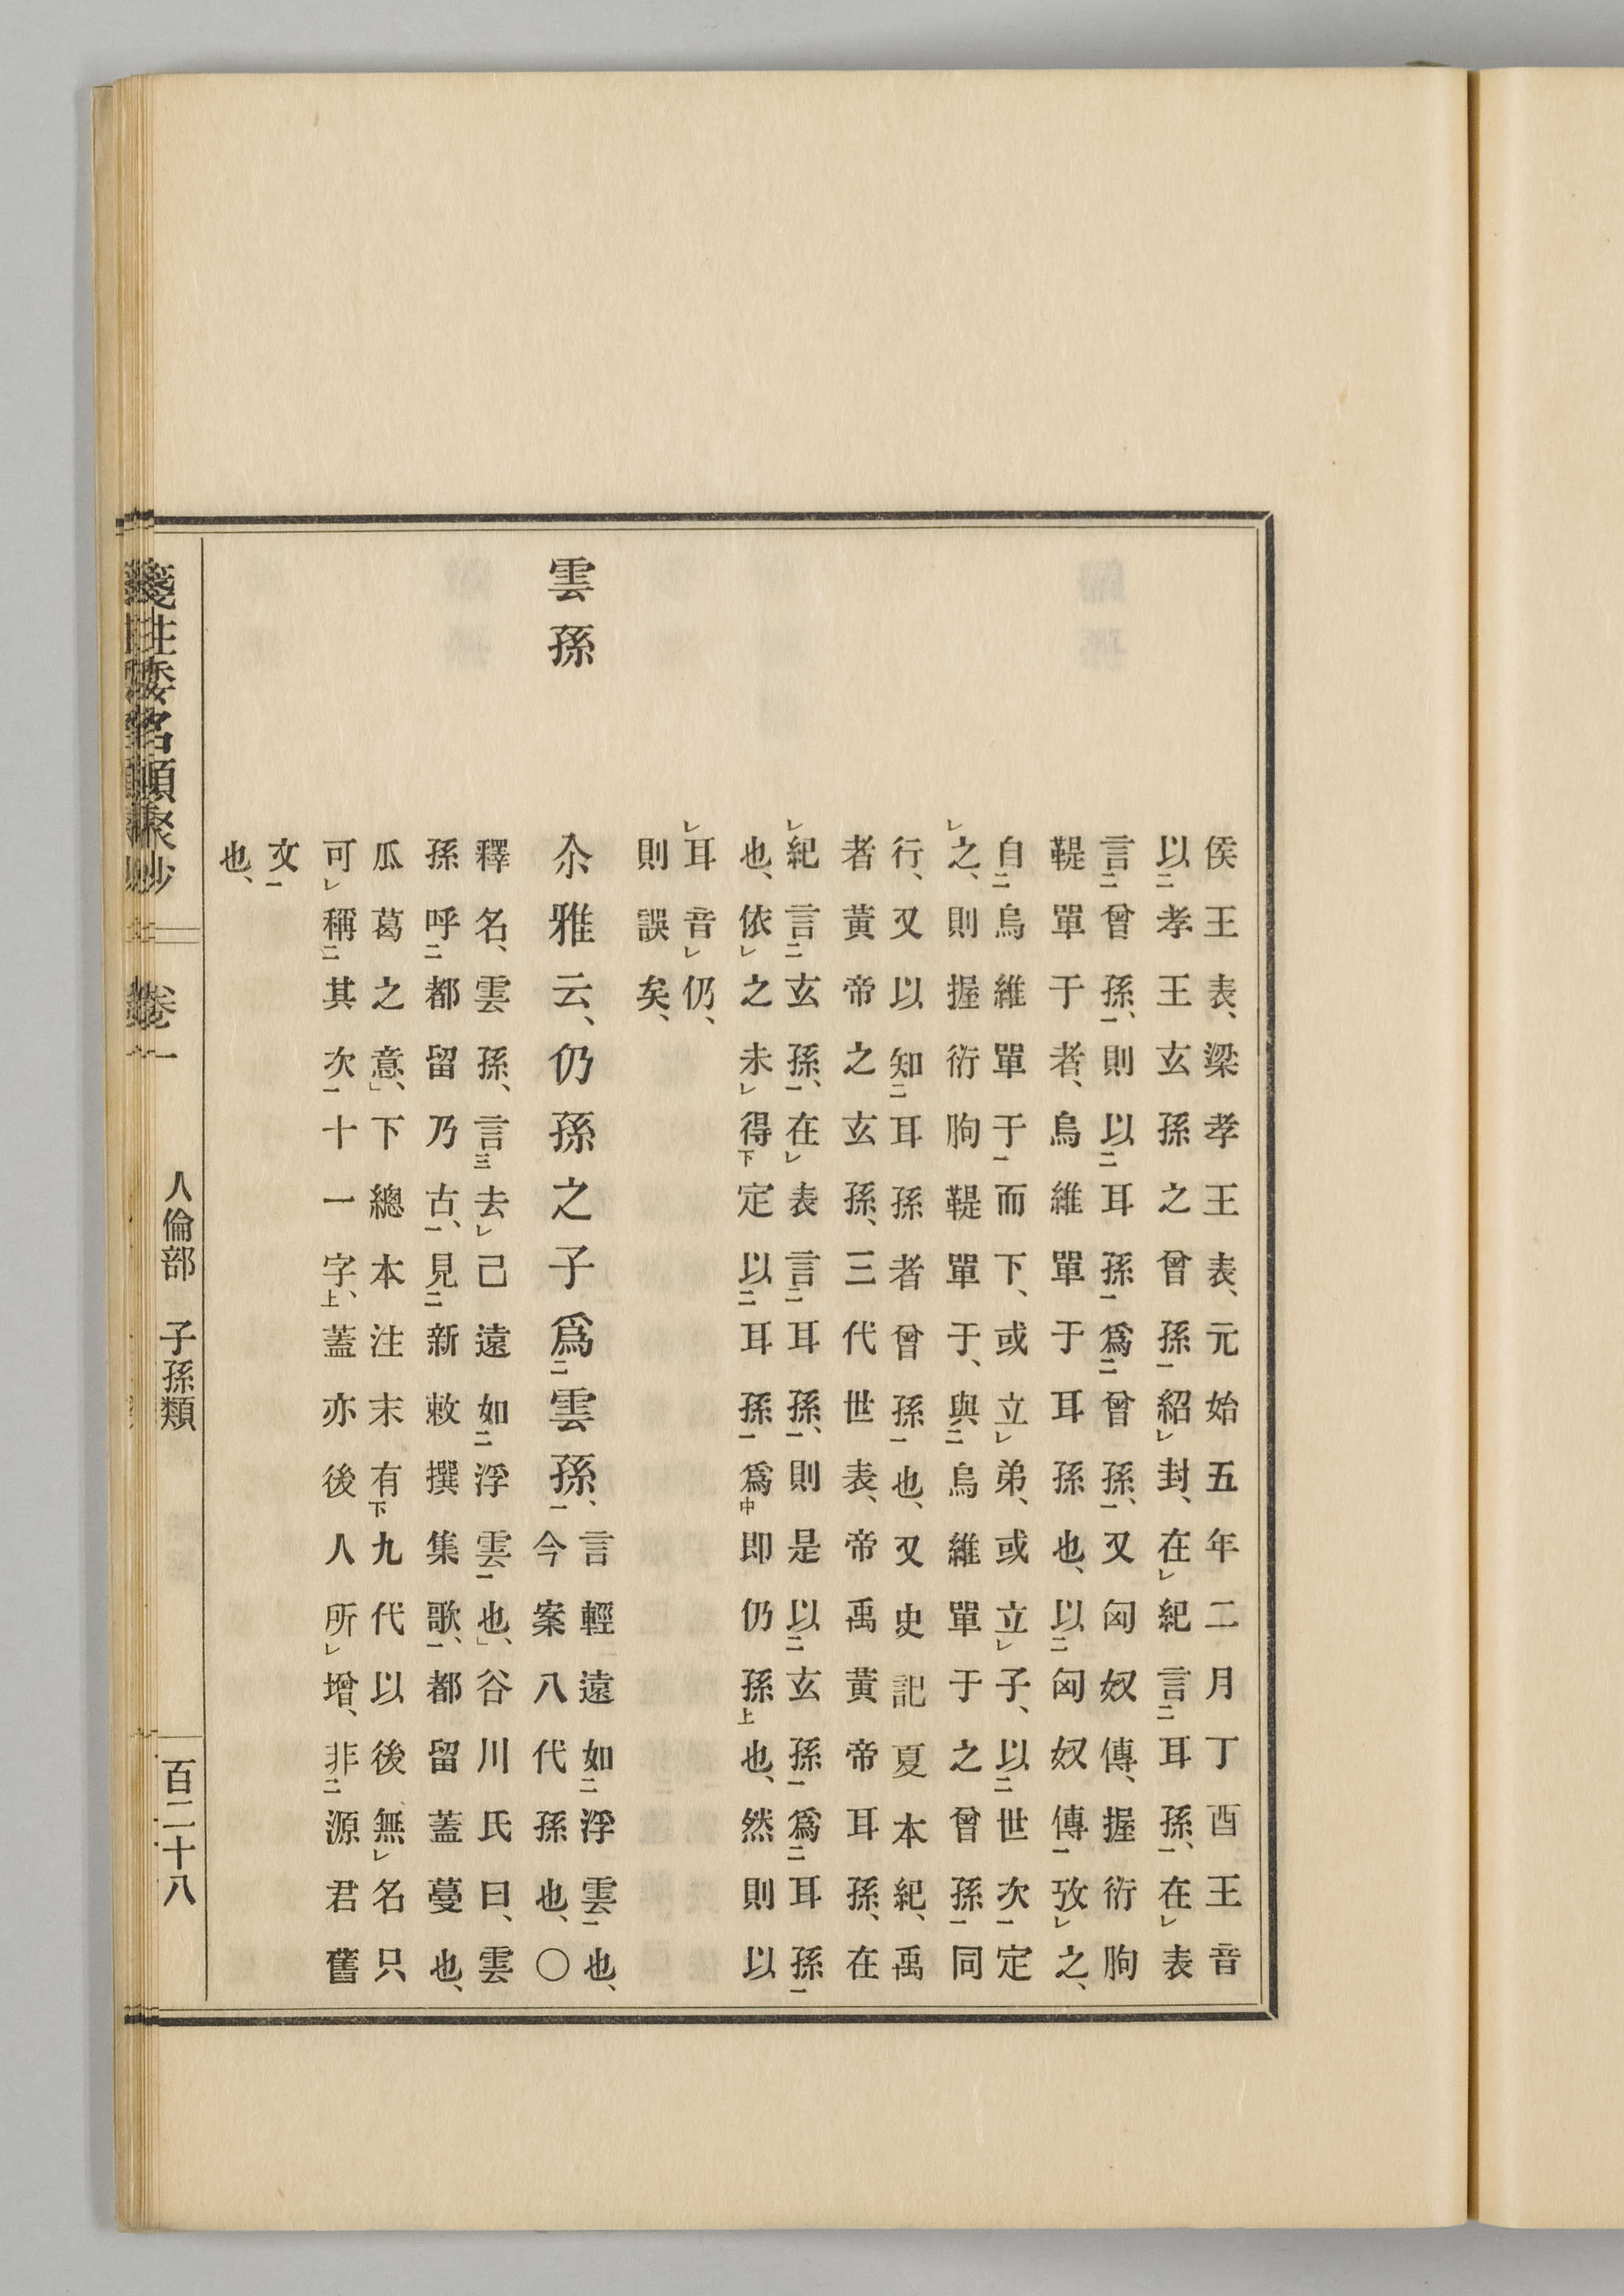 侯王表、梁孝王表、元始五年二月丁酉王音
以二孝王玄孫之曾孫一紹レ封、在レ紀言二耳孫一、在レ表
言二曾孫一、則以二耳孫一爲二曾孫一、又匈奴傳、握衍朐
鞮單于者、烏維單于耳孫也、以二匈奴傳一攷レ之、
自二烏維單于一而下、或立レ弟、或立レ子、以二世次一定
レ之、則握衍朐鞮單于、與二烏維單于之曾孫一同
行、又以知二耳孫者曾孫一也、又史記夏本紀、禹
者黃帝之玄孫、三代世表、帝禹黃帝耳孫、在
レ紀言二玄孫一、在レ表言二耳孫一、則是以二玄孫一爲二耳孫一
也、依レ之未レ得下定以二耳孫一爲中即仍孫上也、然則以
レ耳音レ仍、
則誤矣、
雲孫
尒雅云、仍孫之子爲二雲孫一、
言輕遠如二浮雲一也、
今案八代孫也、〇
釋名、雲孫、言三去レ己遠如二浮雲一也、」谷川氏曰、雲
孫呼二都留乃古一、見二新敕撰集歌一、都留蓋蔓也、
瓜葛之意、」下總本注末有下九代以後無レ名只
可レ稱二其次一十一字上、蓋亦後人所レ增、非二源君舊
文一
也、
箋注倭名類聚抄
卷一
人倫部 子孫類
百二十八